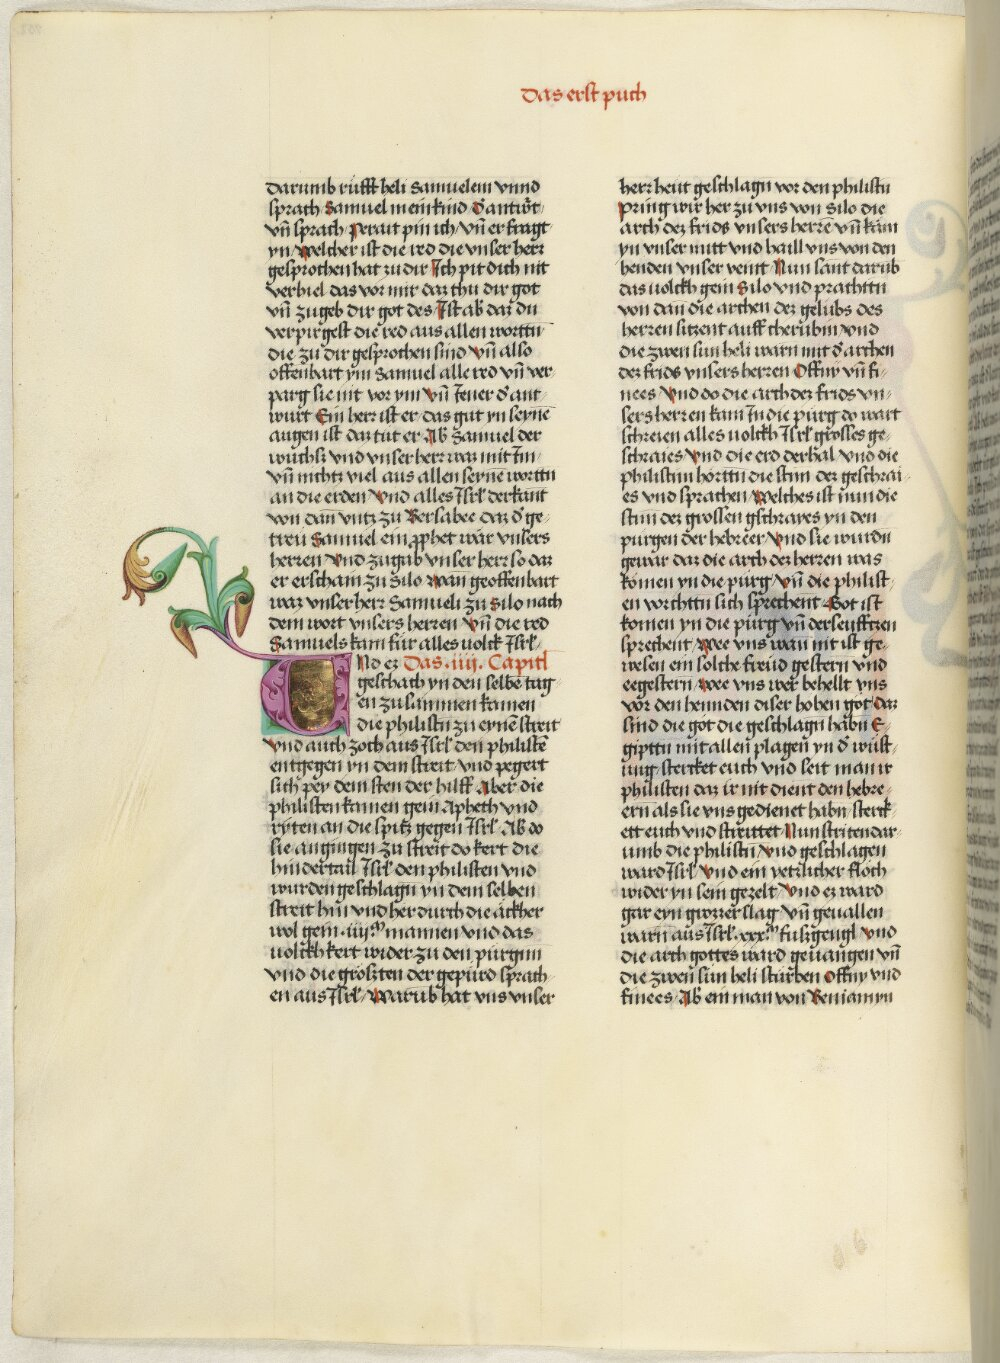 Das erst puch
darumb rüfft heli Samuelem vnnd
sprach Samuel mein kind Er antwort
vñ sprach Perait pin ich vñ er fragt
yn Welcher ist die red die vnser herr
gesprochen hat zu dir Ich pit dich nit
verhiel das vor mir daz thu dir got
vñ zugeb dir got des Ist ab daz du
verpirgest die red aus allen wortten
die zu dir gesprochen sind vñ also
offenbart ym Samuel alle red vñ ver
parg sie nit vor ym vñ Jener d ant-
wurt Ein herr ist er das gut yn seyne
augen ist daz tut er Ab Samuel der
wuchs vnd vnser herr waz mit Im
vñ nichtz viel aus allen seyne worttn
an die erden vnd alles Isrl derkant
von dan vntz zu Bersabee daz d ge-
treu Samuel ein prophet wär vnsers
herren vnd zugab vnser herr so daz
er erscham zu Silo wan geoffenbart
waz vnser herr Samueli zu Silo nach
dem wort vnsers herren vñ die red
Samuels kam für alles volck Isrl
VNd ez Das .iiij. Capitl
geschach yn den selbē tag-
en zusammen kamen
die philistn zu eynē streit
vnd auch zoch aus Isrl den philistē
entgegen yn dem streit vnd pegert
sich pey dem sten der hilff Aber die
philisten kamen gein Apheth vnd
ryten an die spitz gegen Isrl Ab do
sie angingen zu streit do kert die
hindertail Isrl den philisten vnd
wurden geschlagn yn dem selben
streit hin vnd her durch die äckher
wol gein .iiij.m mannen vnd das
volckh kert wider zu den purgnn
vnd die grösten der gepurd sprach-
en aus Isrl Warūb hat vns vnser
herr heut geschlagn vor den philistn
Pring wir her zu vns von Silo die
arch dez frids vnsers herrē vñ kam
yn vnser mitt vnd haill vns von den
henden vnser veint Nun sant darüb
das volckh gein Silo vnd prachttn
von dan die archen dez gelübs des
herren sitzent auff cherubin vnd
die zwen sun heli warn mit d archen
dez frids vnsers herren Offny vñ fi-
nees Vnd do die arch dez frids vn-
sers herren kam In die purg do wart
schreien alles uolckh Isrl grosses ge-
schraies vnd die erd derhal vnd die
philistim hörttn die stim dez geschrai-
es vnd sprachen Welches ist nun die
stim dez grossen gschrayes yn den
purgen der hebreer Vnd sie wurdn
gewar daz die arch dez herren was
komen yn die purg vñ die philist-
en vorchttn sich sprechent Got ist
komen yn die purg vñ derseufftzten
sprechent Wee vns wan nit ist ge-
wesen ein solche freud gestern vnd
eegestern Wee vns wer behellt vns
vor den hennden diser hohen got Daz
sind die got die geschlagn habn E-
gipttn mit allen plagen yn d wüst-
ung sterket euch vnd seit man ir
philisten daz ir nit dient den hebre-
ern als sie vns gedienet habn sterk-
ett euch vnd strittet Nun striten dar-
umb die philistn vnd geschlagen
ward Isrl vnd ein yetzlicher floch
wider yn sein gezelt Vnd ez ward
gar eyn grozzer slag vñ geuallen
warn aus Isrl .xxx.m fuszgengl vnd
die arch gottes ward geuangen vñ
die zwen sun heli sturben Offny vnd
finees Ab ein man von Beniamyn